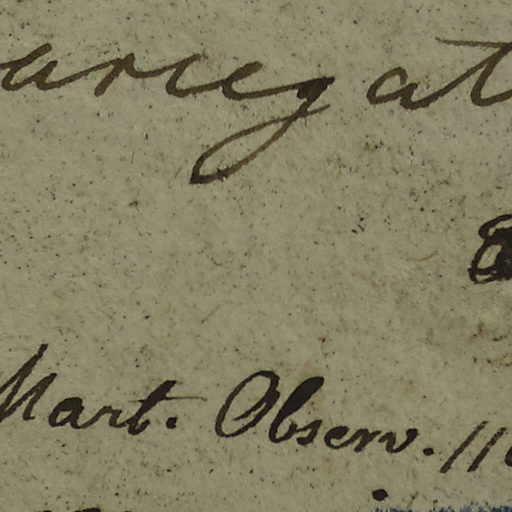 ariegat
Mart. Observ. 11